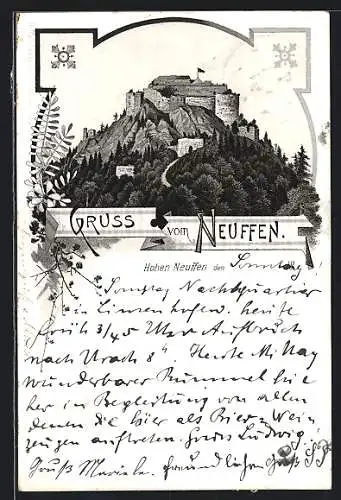 GRUSS VOM NEUFFEN.
Hohen Neuffen den Sonntag
Samstag Nachtquartier
in heute
früh 3/45 Uhr Aufbruch
nach Urach 8" Heute Mittag
wunderbarer Bummel hie
her in Begleitung von allen
denen die hier als Bier-Wein
zeugen auftreten. Ludwig
Gruß freundlichen Gruß